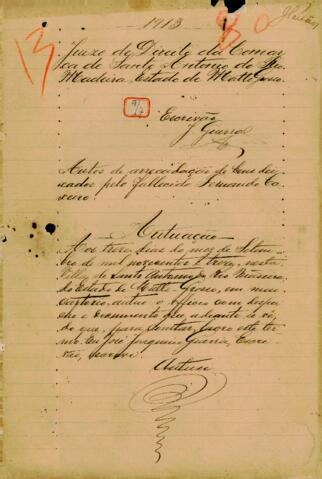 1913
13
30
Juizo de Direito da Comar
ca de Santo Antonio do Rio
Madeira, Estado de Matto Grosso.
Escrivão
J Guerra
Autos de arrecadação de bens dei
xados pelo fallecido Fernando Ca
Autuação
Aos tres dias do mez de Setem
bro de mil novecentos e treze, nesta
Villa de Santo Antonio do Rio Madeira,
do Estado de Matto Grosso, em meu
cartorio, autuo o officio com despa
cho e documento que adiante se vê,
do que, para constar, lavro este ter
mo. Eu José Joaquim Guerra, Escri
vão, escrevi
Autuei